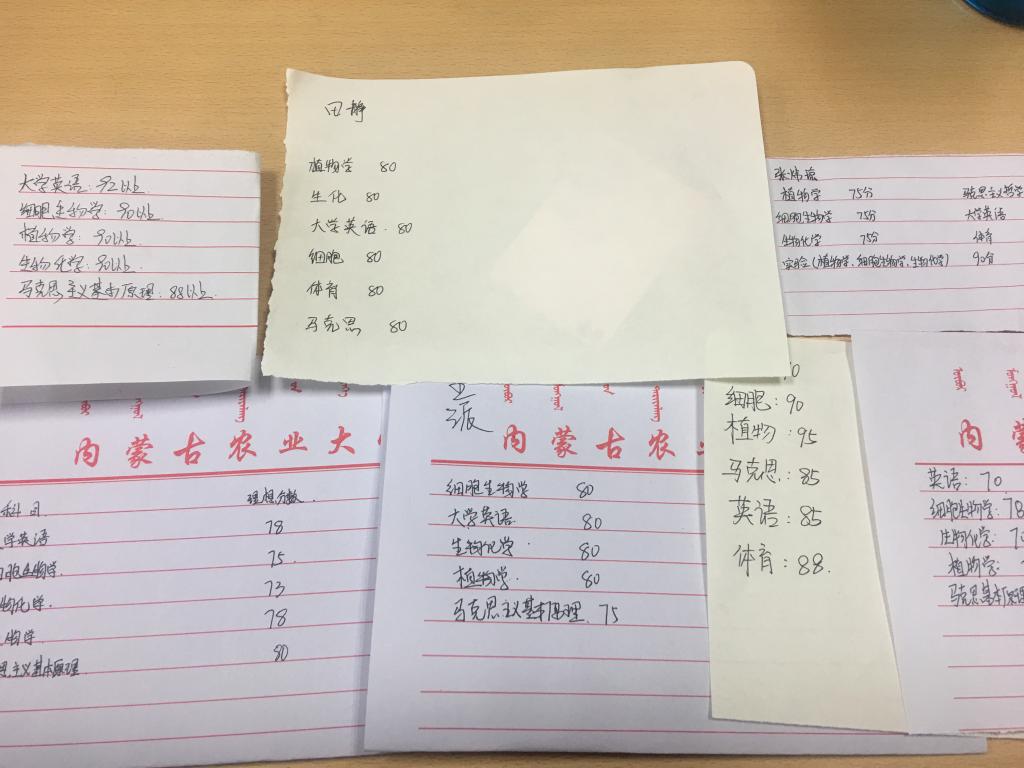 大学英语：92以上
细胞生物学：90以上
植物学：90以上
生物化学：90以上
马克思主义基本原理：88以上
田静
植物学 80
生化 80
大学英语 80
细胞 80
体育 80
马克思 80
植物学 75分 马克思主义哲学
细胞生物学 75分 大学英语
生物化学 75分 体育
实验（植物学、细胞生物学、生物化学） 90分
内蒙古农业大
科目 理想分数
学英语 78
胞生物学 75
物化学 73
物学 78
思主义基本原理 80
派
细胞生物学 80
大学英语 80
生物化学 80
植物学 80
马克思主义基本原理 75
细胞：90
植物：95
马克思：85
英语：85
体育：88
内蒙
英语：70
细胞生物学：78
生物化学：70
植物学：
马克思基本原理